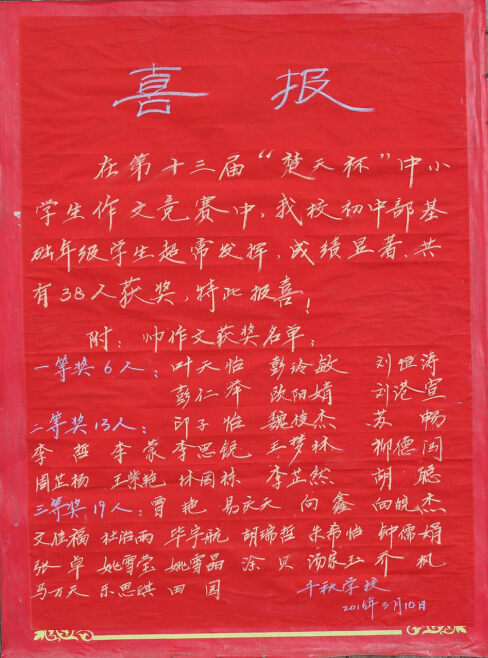 喜报
在第十三届“楚天杯”中小
学生作文竞赛中，我校初中部基
础年级学生超常发挥，成绩显著，共
有38人获奖，特此报喜！
附：帅作文获奖名单：
一等奖6人：叶天怡 彭玲敏 刘恒涛
彭仁泽 欧阳娟 刘港宣
二等奖13人：印子怡 魏俊杰 苏畅
李哲 李蒙 李思锐 王梦林 柳德闰
周芷杨 王紫艳 林园林 李芷然 胡聪
三等奖19人：曹艳 易庆天 向鑫 向皖杰
文佳福 杜治雨 毕宇航 胡瑞哲 朱希怡 钟儒娟
张卓 姚雪莹 姚雪晶 涂贝 汤家玉 乔机
马万天 乐思琪 田园 千秋学校
2016年3月10日